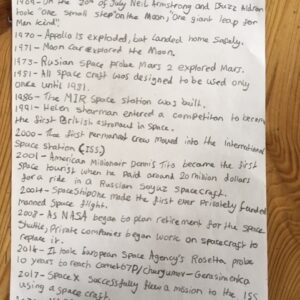 1969 - On the 20th of July Neil Armstrong and Buzz Aldrin
took "One small step on the Moon, One giant leap for
Man kind".
1970 - Appollo 13 exploded, but landed home safely.
1971 - Moon car explored the Moon.
1973 - Russian Space probe Mars 2 explored Mars.
1981 - All space craft was designed to be used only
once until 1981.
1986 - The MIR Space station was built.
1991 - Helen Sharman entered a competiton to become
the first British astronaut in space.
2000 - The first permanent crew moved into the International
Space Station (ISS)
2001 - American Millionair Dennis Tito became the first
space tourist when he paid around 20 million dollars
for a ride in a Russian Soyuz Spacecraft.
2004 - SpaceShipOne made the first ever Privately funded
manned Space flight.
2008 - As NASA began to plan retirement for the space
Shuttle, Private companies began work on spacecraft to
replace it.
2014 - It took European Space Agency's Rosetta probe
10 years to reach comet 67P/churyumov - Gerasimenko
2017 - Space X Successfully flew a mission to the ISS
using a space craft